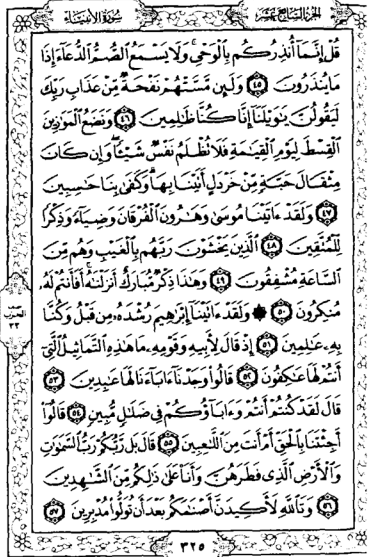 الجزء السابع عشر
سورة الأنبياء
قُلْ إِنَّمَآ أُنذِرُكُم بِٱلْوَحْىِ ۚ وَلَا يَسْمَعُ ٱلصُّمُّ ٱلدُّعَآءَ إِذَا
مَا يُنذَرُونَ ٤٥ وَلَئِن مَّسَّتْهُمْ نَفْحَةٌ مِّنْ عَذَابِ رَبِّكَ
لَيَقُولُنَّ يَٰوَيْلَنَآ إِنَّا كُنَّا ظَٰلِمِينَ ٤٦ وَنَضَعُ ٱلْمَوَٰزِينَ
ٱلْقِسْطَ لِيَوْمِ ٱلْقِيَٰمَةِ فَلَا تُظْلَمُ نَفْسٌ شَيْـًٔا ۖ وَإِن كَانَ
مِثْقَالَ حَبَّةٍ مِّنْ خَرْدَلٍ أَتَيْنَا بِهَا ۗ وَكَفَىٰ بِنَا حَٰسِبِينَ
٤٧ وَلَقَدْ ءَاتَيْنَا مُوسَىٰ وَهَٰرُونَ ٱلْفُرْقَانَ وَضِيَآءً وَذِكْرًا
لِّلْمُتَّقِينَ ٤٨ ٱلَّذِينَ يَخْشَوْنَ رَبَّهُم بِٱلْغَيْبِ وَهُم مِّنَ
ٱلسَّاعَةِ مُشْفِقُونَ ٤٩ وَهَٰذَا ذِكْرٌ مُّبَارَكٌ أَنزَلْنَٰهُ ۚ أَفَأَنتُمْ لَهُۥ
مُنكِرُونَ ٥٠ ۞ وَلَقَدْ ءَاتَيْنَآ إِبْرَٰهِيمَ رُشْدَهُۥ مِن قَبْلُ وَكُنَّا
بِهِۦ عَٰلِمِينَ ٥١ إِذْ قَالَ لِأَبِيهِ وَقَوْمِهِۦ مَا هَٰذِهِ ٱلتَّمَاثِيلُ ٱلَّتِىٓ
أَنتُمْ لَهَا عَٰكِفُونَ ٥٢ قَالُوا۟ وَجَدْنَآ ءَابَآءَنَا لَهَا عَٰبِدِينَ ٥٣
قَالَ لَقَدْ كُنتُمْ أَنتُمْ وَءَابَآؤُكُمْ فِى ضَلَٰلٍ مُّبِينٍ ٥٤ قَالُوٓا۟
أَجِئْتَنَا بِٱلْحَقِّ أَمْ أَنتَ مِنَ ٱللَّٰعِبِينَ ٥٥ قَالَ بَل رَّبُّكُمْ رَبُّ ٱلسَّمَٰوَٰتِ
وَٱلْأَرْضِ ٱلَّذِى فَطَرَهُنَّ وَأَنَا۠ عَلَىٰ ذَٰلِكُم مِّنَ ٱلشَّٰهِدِينَ
٥٦ وَتَٱللَّهِ لَأَكِيدَنَّ أَصْنَٰمَكُم بَعْدَ أَن تُوَلُّوا۟ مُدْبِرِينَ ٥٧
الحزب
٣٣
٣٢٥